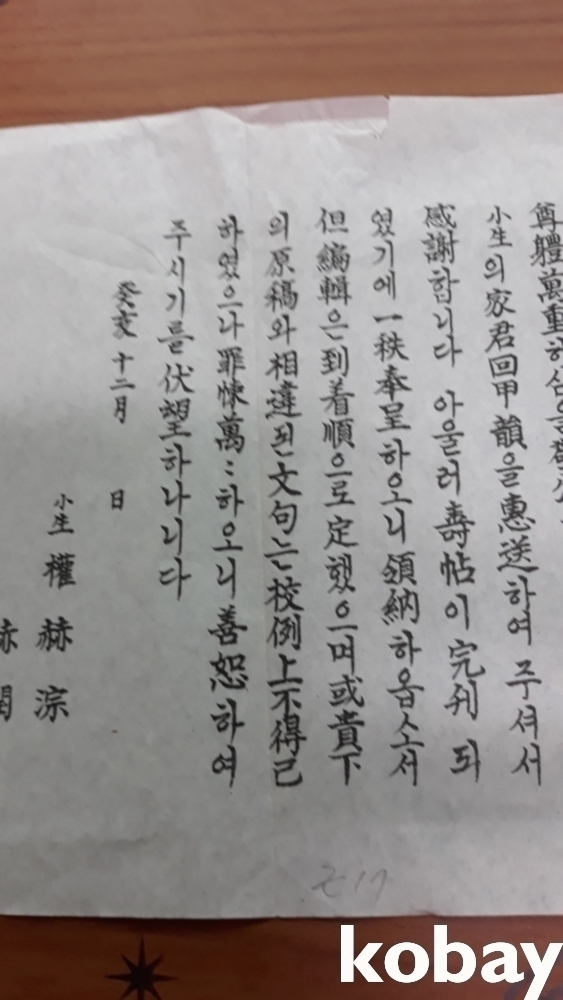 尊體萬重하심을
小生의家君回甲韻을惠送하여주셔서
感謝합니다 아울러壽帖이完刊되
였기에一秩奉呈하오니領納하옵소서
但編輯은到着順으로定했으며或貴下
의原稿와相違된文句는校例上不得已
하였으나罪悚萬〻하오니善恕하여
주시기를伏望하나니다
癸亥十二月 日
小生 權赫淙
赫
kobay